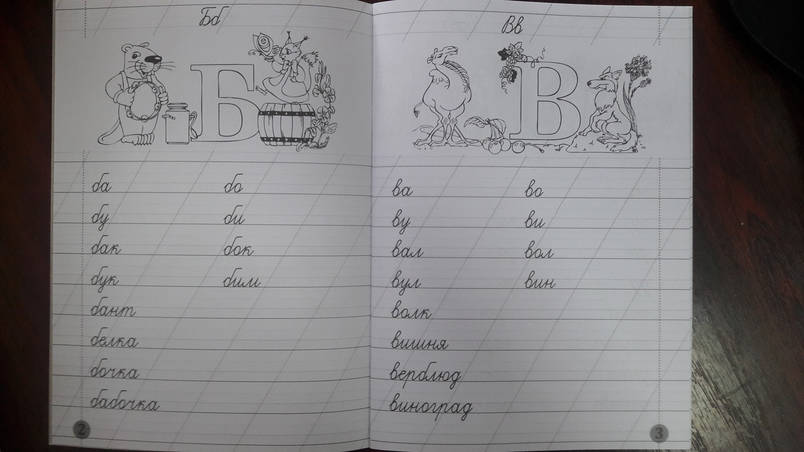 Бб
Б
ба бо
бу би
бак бок
бук бим
бант
белка
бочка
бабочка
2
Вв
В
ва во
ву ви
вал вол
вул вин
волк
вишня
верблюд
виноград
3